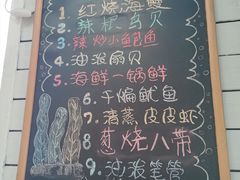 1 红烧海鳗
2 辣根鸟贝
3 辣炒小鲍鱼
4 油泼扇贝
5 海鲜一锅鲜
6 干煸鱿鱼
7 清蒸皮皮虾
8 葱烧八带
9 油泼笔管